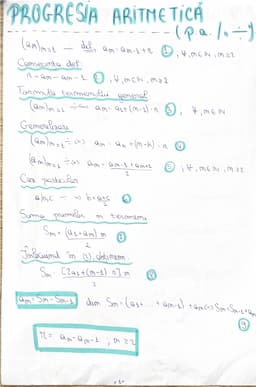 PROGRESIA ARITMETICĂ
(p.a. / ÷)
(an)n≥1 — def. an = an-1 + r ①, ∀, n∈N, n≥2
Consecința def.
r = an - an-1 ②, ∀, n∈N, n≥2
Formula termenului general
(an)n≥1 ÷ <=> an = a1+(n-1)·r ③, ∀, n∈N
Generalizare
(an)n≥1 ÷ <=> an = ak + (n-k)·r ④
(an)n≥1 ÷ <=> an = an-1+an+1 / 2 ⑤, ∀, n∈N, n≥2
Caz particular
a,b,c ÷ <=> b = a+c / 2 ⑥
Suma primilor n termeni
Sn = (a1+an)·n / 2 ⑦
Înlocuind în (3), obținem:
Sn = [2a1+(n-1)·r]·n / 2 ⑧
an = Sn - Sn-1 din Sn = (a1+ ... + an-1) + an <=> Sn = Sn-1 + an
⑨
r = an - an-1, n≥2